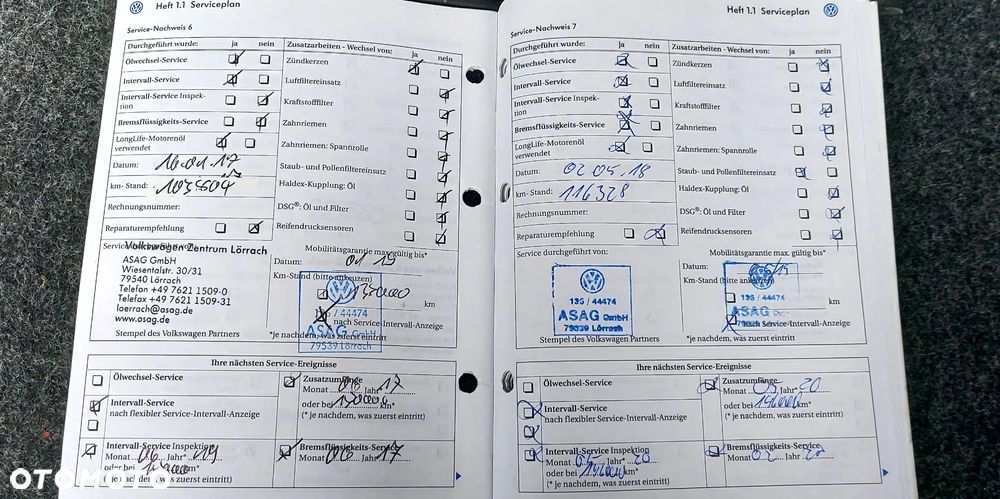 Heft 1.1 Serviceplan
Service-Nachweis 6
Durchgeführt wurde: ja nein
Zusatzarbeiten - Wechsel von: ja nein
Ölwechsel-Service
Zündkerzen
Intervall-Service
Luftfiltereinsatz
Intervall-Service Inspek-
tion
Kraftstofffilter
Bremsflüssigkeits-Service
Zahnriemen
LongLife-Motorenöl
verwendet
Zahnriemen: Spannrolle
Datum: 16.01.17
Staub- und Pollenfiltereinsatz
km- Stand: 103504
Haldex-Kupplung: Öl
Rechnungsnummer:
DSG®: Öl und Filter
Reparaturempfehlung
Reifendrucksensoren
Volkswagen Zentrum Lörrach
ASAG GmbH
Wiesentalstr. 30/31
79540 Lörrach
Telefon +49 7621 1509-0
Telefax +49 7621 1509-31
loerrach@asag.de
www.asag.de
Stempel des Volkswagen Partners
Mobilitätsgarantie max. gültig bis*
Datum: 01 19
Km-Stand (bitte ankreuzen)
km
/ 44474
nach Service-Intervall-Anzeige
ASAG GmbH
79539 Lörrach
*je nachdem, was zuerst eintritt
Ihre nächsten Service-Ereignisse
Ölwechsel-Service
Zusatzumfänge
Monat Jahr* 17
oder bei km*
(* je nachdem, was zuerst eintritt)
Intervall-Service
nach flexibler Service-Intervall-Anzeige
Intervall-Service Inspektion
Monat Jahr* 19
oder bei km*
(* je nachdem, was zuerst eintritt)
Bremsflüssigkeits-Service
Monat Jahr 17
Heft 1.1 Serviceplan
Service-Nachweis 7
Durchgeführt wurde: ja nein
Zusatzarbeiten - Wechsel von: ja nein
Ölwechsel-Service
Zündkerzen
Intervall-Service
Luftfiltereinsatz
Intervall-Service Inspek-
tion
Kraftstofffilter
Bremsflüssigkeits-Service
Zahnriemen
LongLife-Motorenöl
verwendet
Zahnriemen: Spannrolle
Datum: 02.05.18
Staub- und Pollenfiltereinsatz
km- Stand: 116328
Haldex-Kupplung: Öl
Rechnungsnummer:
DSG®: Öl und Filter
Reparaturempfehlung
Reifendrucksensoren
Service durchgeführt von:
136 / 44474
ASAG GmbH
79539 Lörrach
Stempel des Volkswagen Partners
Mobilitätsgarantie max. gültig bis*
Datum:
Km-Stand (bitte ankreuzen)
km
136 / 44474
ASAG GmbH
nach Service-Intervall-Anzeige
79539 Lörrach
*je nachdem, was zuerst eintritt
Ihre nächsten Service-Ereignisse
Ölwechsel-Service
Zusatzumfänge
Monat 05 Jahr* 20
oder bei km*
(* je nachdem, was zuerst eintritt)
Intervall-Service
nach flexibler Service-Intervall-Anzeige
Intervall-Service Inspektion
Monat 05 Jahr* 20
oder bei km*
(* je nachdem, was zuerst eintritt)
Bremsflüssigkeits-Service
Monat Jahr 20